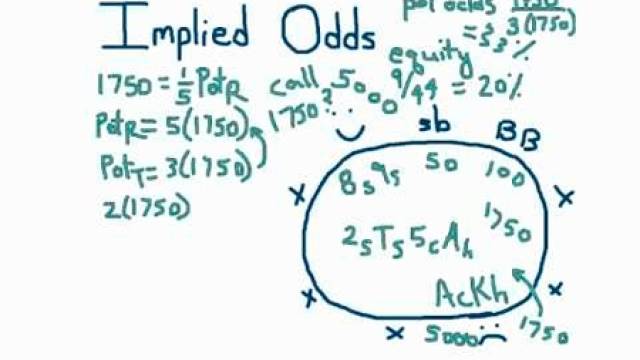 Implied Odds
pot odds 1750
3(1750)
= 33%
equity
9/44 = 20%
1750 = 1/5 PotR
PotR = 5(1750)
PotT = 3(1750)
2(1750)
call 5000
1750?
sb BB
8s9s 50 100
1750
2sTs5cAh
AcKh
5000 1750
x
x
x
x
x